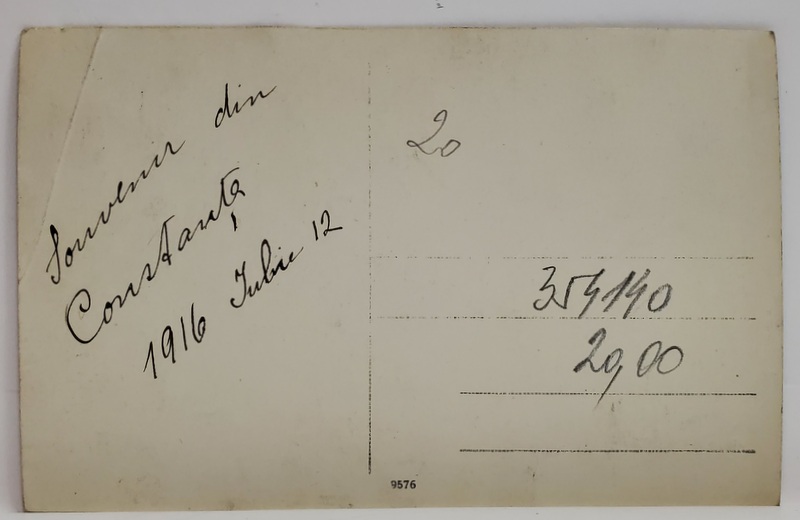 Souvenir din
Constanța
1916 Iulie 12
20
354140
20,00
9576